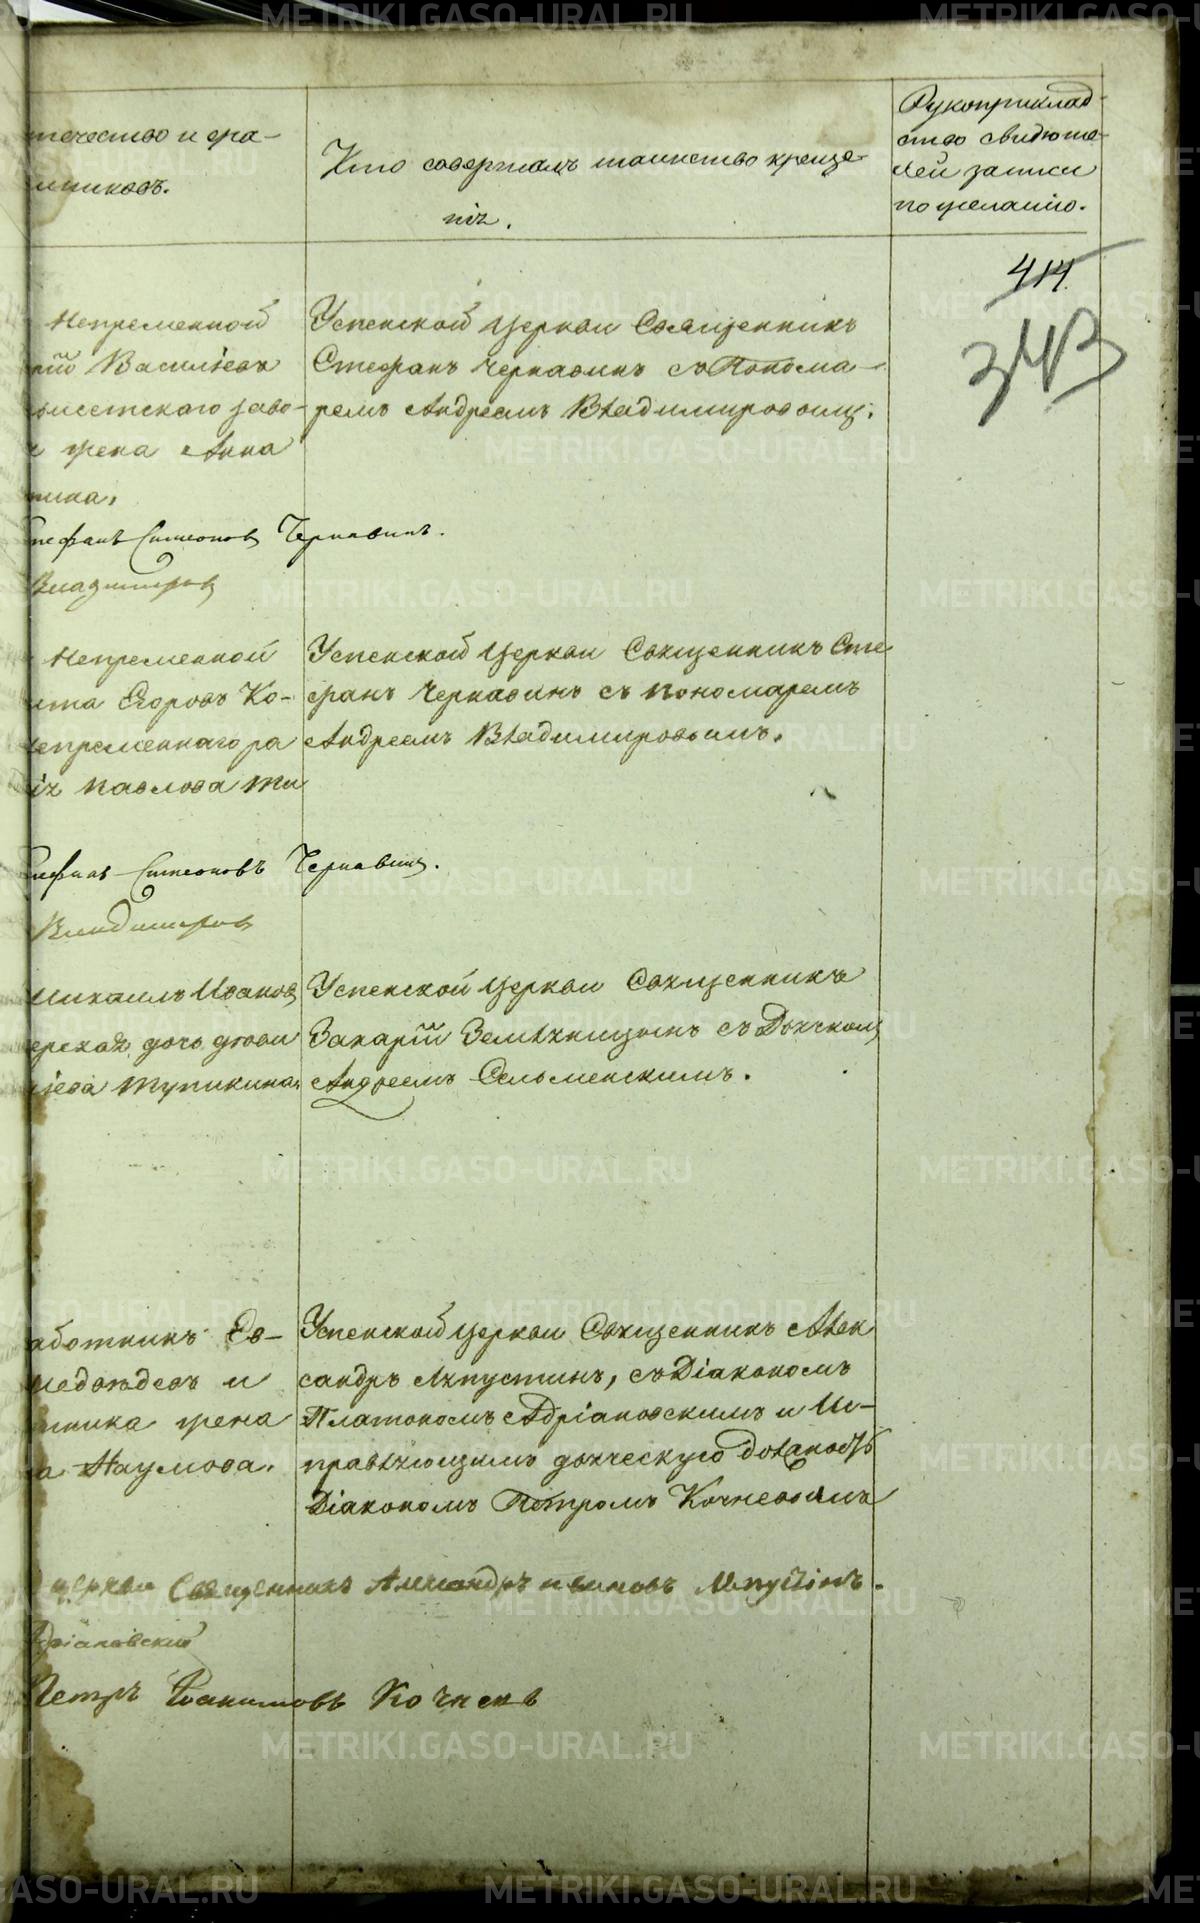 течество и фа-
миліихъ.
Кто совершалъ таинство креще-
нія.
Рукоприклад-
ство свидѣте-
лей записи
по желанію.
414
343
Непременной
рій Васильевъ
висетскаго заво-
жена Анна
Успенской Церкви Священникъ
Стефанъ Чернавинъ съ Понома-
ремъ Андреемъ Владимировымъ.
тефанъ Симеоновъ Чернавинъ.
Владимировъ
Непременной
ита Егоровъ Ко-
епременнаго ра
ія Павлова Ти
Успенской Церкви Священникъ Сте
фанъ Чернавинъ съ пономаремъ
Андреемъ Владимировымъ.
тефанъ Симеоновъ Чернавинъ.
Владимировъ
Михаилъ Ивановъ
дочь девки
иева Тупикина.
Успенской Церкви Священникъ
Захарій Земляницынъ съ Дьячкомъ
Андреемъ Сельменскимъ.
аботникъ Ев-
медведевъ и
тника жена
а Наумова.
Успенской Церкви Священникъ Алек
сандръ Ляпустинъ, съ Діакономъ
Платономъ Адріановскимъ и Ис-
правляющимъ дьяческую должность
Діакономъ Петромъ Кочневымъ
церкви Священникъ Александръ Ляпустинъ.
дріановскій
Петръ Іоакимовъ Кочневъ
METRIKI.GASO-URAL.RU